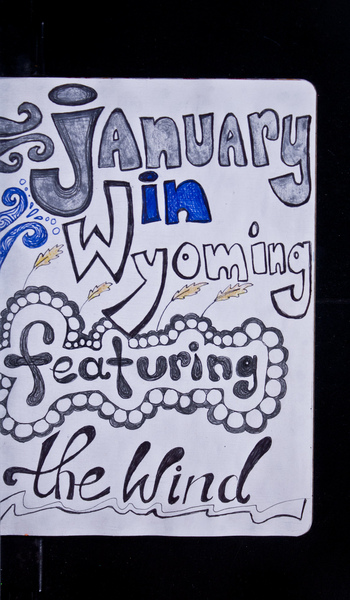 January
in
Wyoming
featuring
the Wind